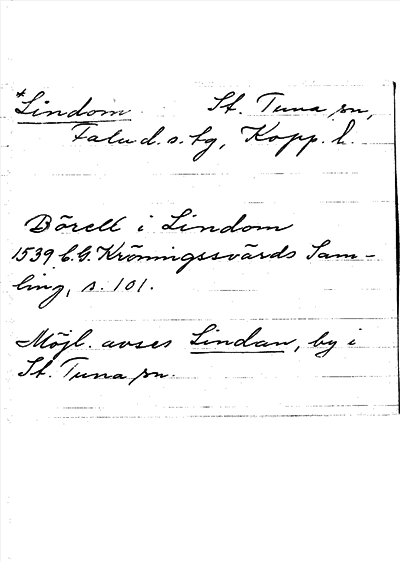 *Lindom St. Tuna sn,
Falu d. s. tg, Kopp. l.
Börell i Lindom
1539 C.G. Kröningssvärds Sam-
ling, s. 101.
Möjl. avses Lindan, by i
St. Tuna sn.